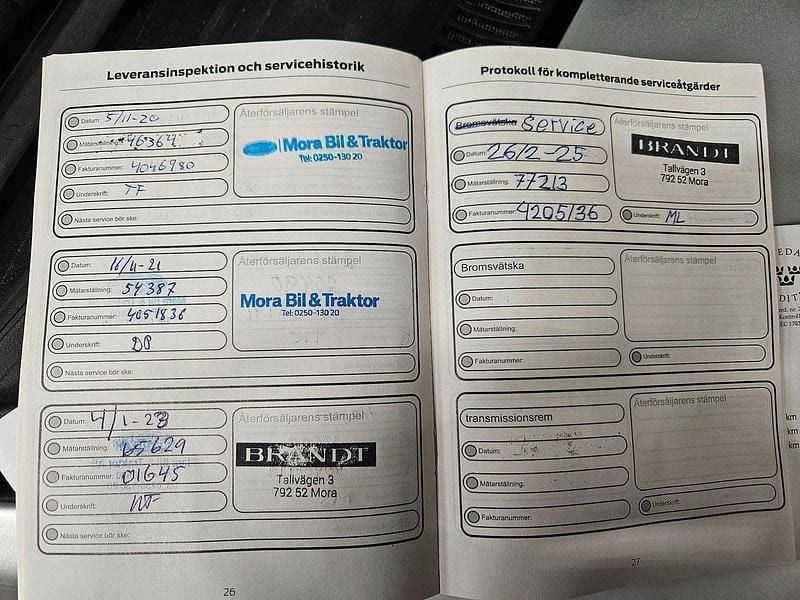 Leveransinspektion och servicehistorik
Datum: 5/11-20
Mätarställning: 46364
Fakturanummer: 4046980
Underskrift: TF
Nästa service bör ske:
Återförsäljarens stämpel
Mora Bil & Traktor
Tel: 0250-130 20
Datum: 16/11-21
Mätarställning: 54387
Fakturanummer: 4051836
Underskrift:
Nästa service bör ske:
Återförsäljarens stämpel
Mora Bil & Traktor
Tel: 0250-130 20
Datum: 4/1-23
Mätarställning: 65629
Fakturanummer: 01645
Underskrift:
Nästa service bör ske:
Återförsäljarens stämpel
BRANDT
Tallvägen 3
792 52 Mora
26
Protokoll för kompletterande serviceåtgärder
Bromsvätska Service
Datum: 26/2-25
Mätarställning: 77213
Fakturanummer: 4205136
Återförsäljarens stämpel
BRANDT
Tallvägen 3
792 52 Mora
Underskrift: ML
Bromsvätska
Datum:
Mätarställning:
Fakturanummer:
Återförsäljarens stämpel
Underskrift:
transmissionsrem
Datum:
Mätarställning:
Fakturanummer:
Återförsäljarens stämpel
Underskrift:
27
km
km
km